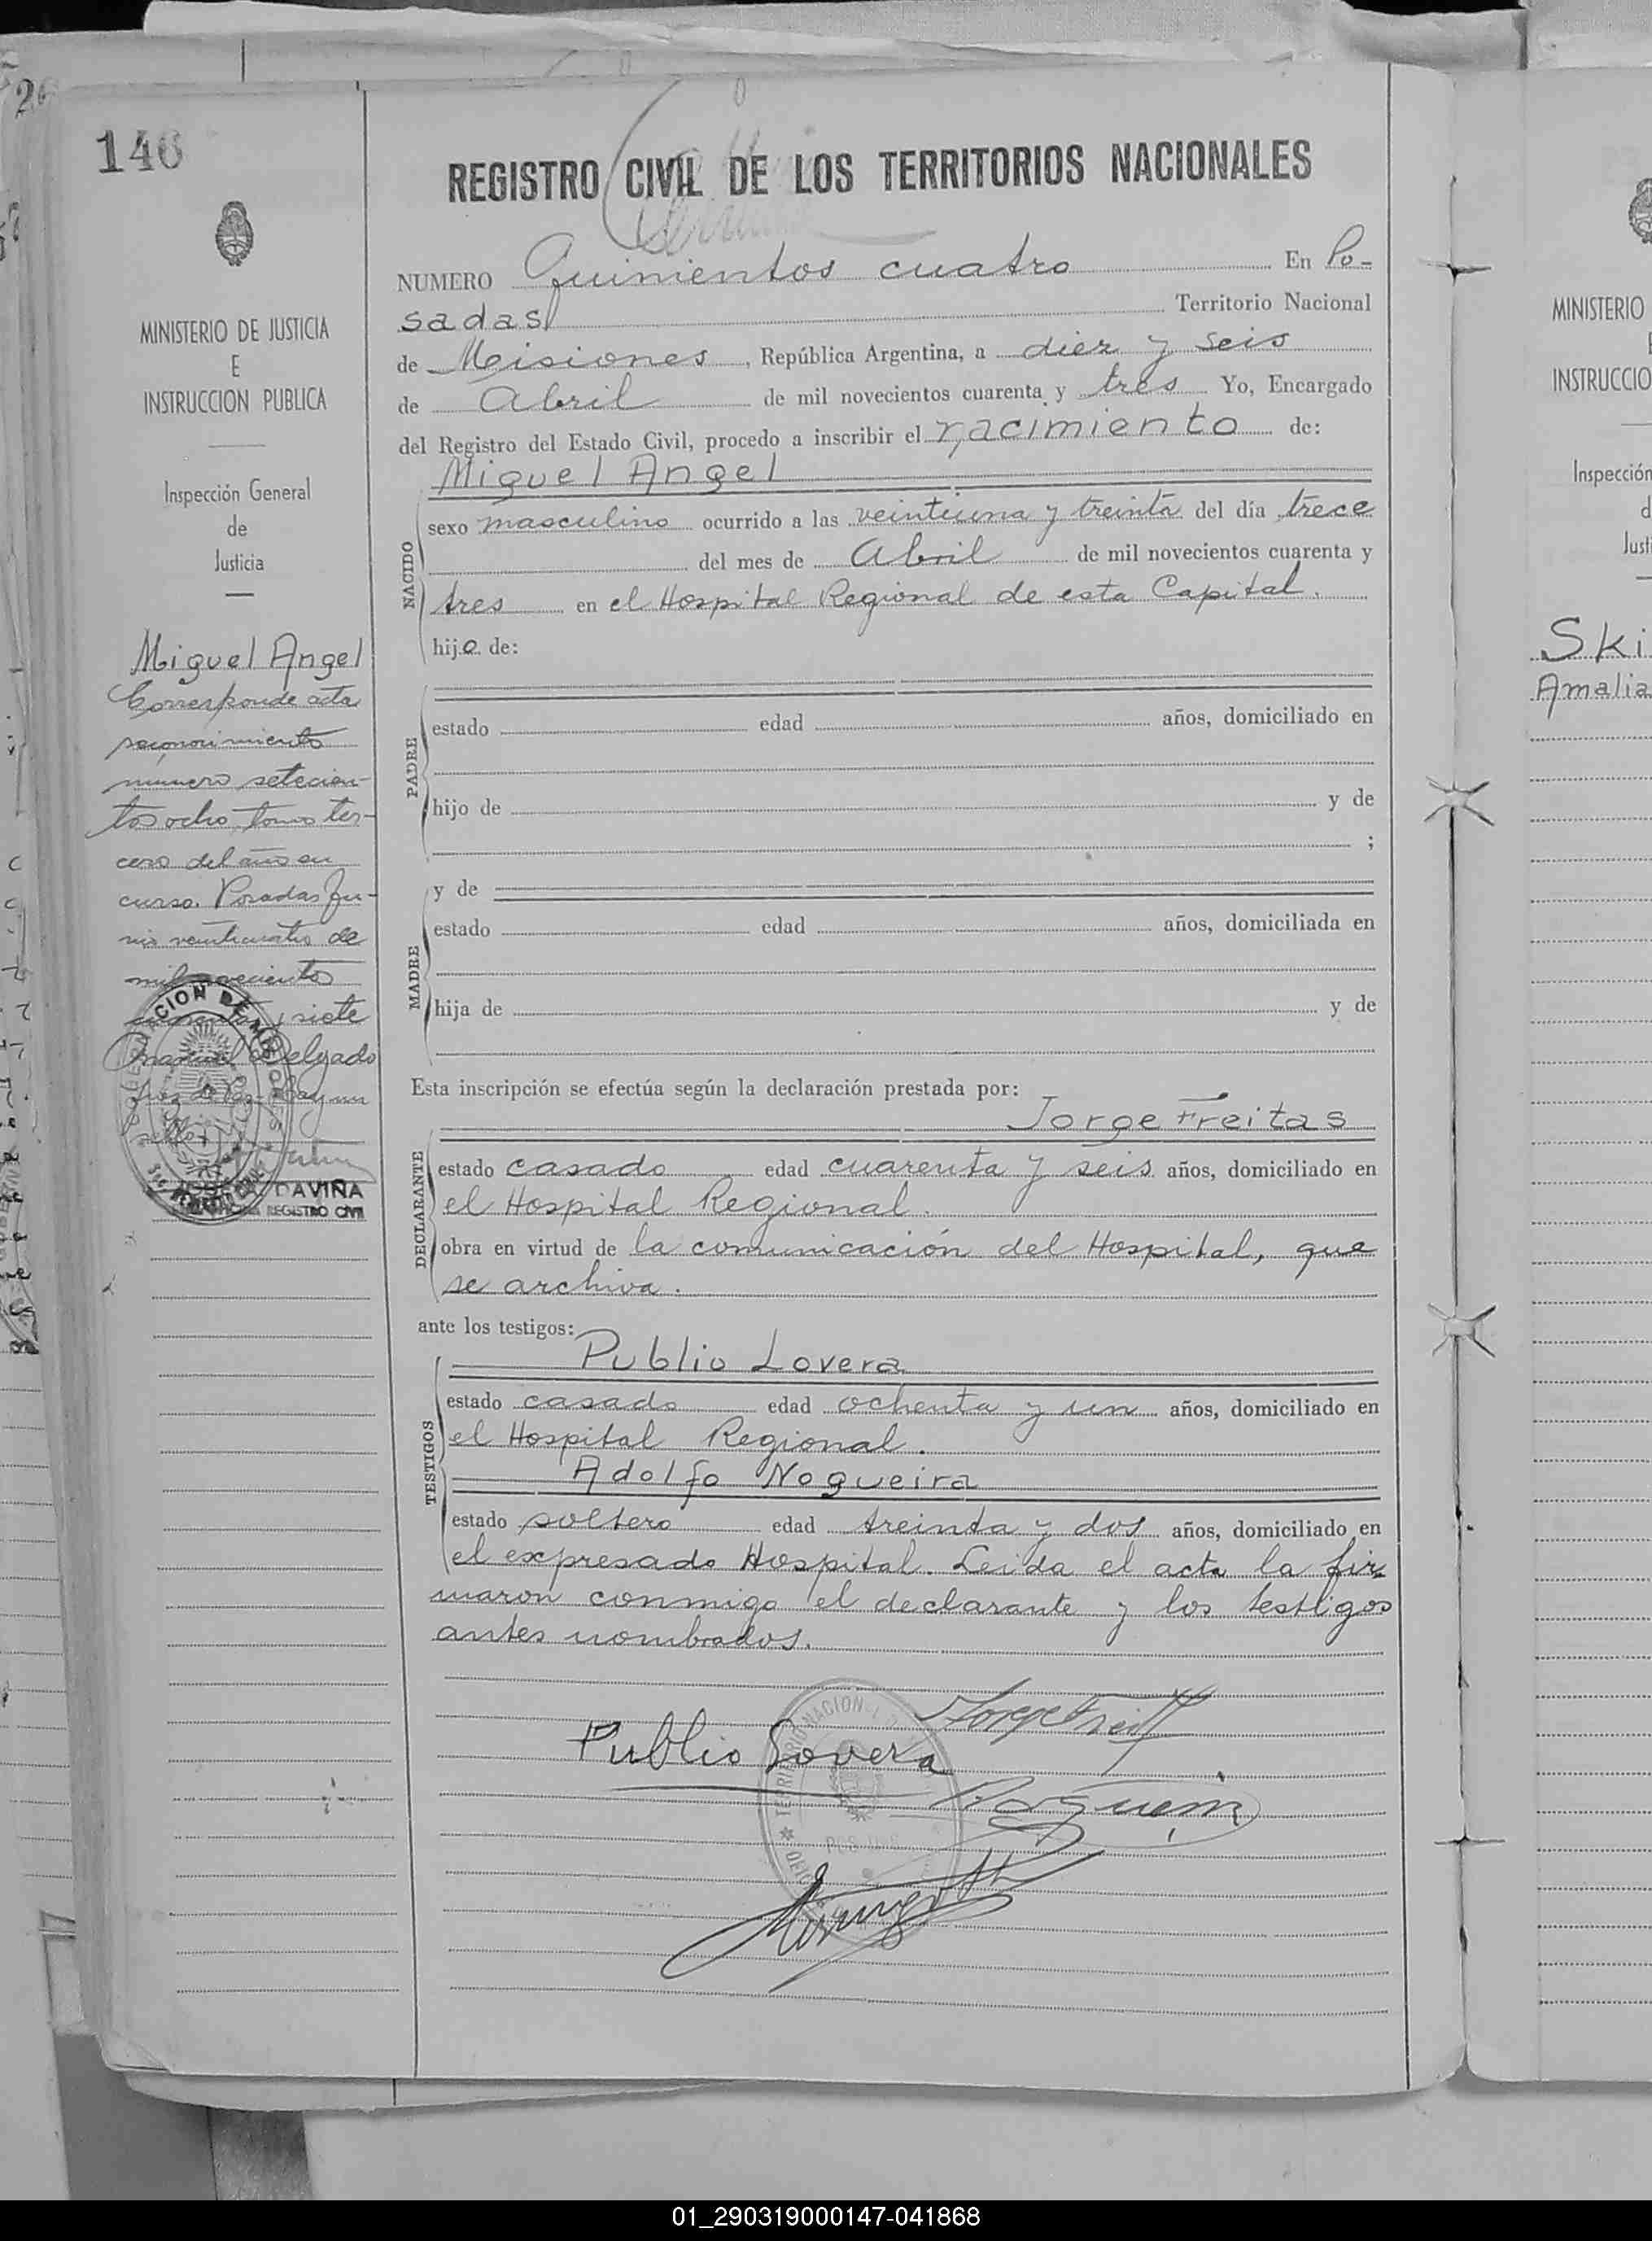 146
REGISTRO CIVIL DE LOS TERRITORIOS NACIONALES
MINISTERIO DE JUSTICIA
E
INSTRUCCION PUBLICA
Inspección General
de
Justicia
Miguel Angel
Corresponde acta
reconocimiento
número setecien-
tos ocho tomo ter-
cero del año en
curso. Posadas Ju-
nio veinticuatro de
mil novecientos
y siete
Manuel Delgado
Juez de Paz - Hay un
sello
DAVIÑA
REGISTRO CIVIL
NUMERO Quinientos cuatro En Po-
sadas Territorio Nacional
de Misiones, República Argentina, a diez y seis
de Abril de mil novecientos cuarenta y tres Yo, Encargado
del Registro del Estado Civil, procedo a inscribir el nacimiento de:
Miguel Angel
NACIDO
sexo masculino ocurrido a las veintiuna y treinta del día trece
del mes de Abril de mil novecientos cuarenta y
tres en el Hospital Regional de esta Capital.
hijo de:
PADRE
estado edad años, domiciliado en
hijo de y de
;
MADRE
y de
estado edad años, domiciliada en
hija de y de
Esta inscripción se efectúa según la declaración prestada por:
Jorge Freitas
DECLARANTE
estado casado edad cuarenta y seis años, domiciliado en
el Hospital Regional.
obra en virtud de la comunicación del Hospital, que
se archiva.
ante los testigos:
Publio Lovera
TESTIGOS
estado casado edad ochenta y un años, domiciliado en
el Hospital Regional.
Adolfo Nogueira
estado soltero edad treinta y dos años, domiciliado en
el expresado Hospital. Leida el acta la fir-
maron conmigo el declarante y los testigos
antes nombrados.
Jorge Freit
Publio Lovera
TERRITORIO NACIONAL
MINISTERIO
INSTRUCCIO
Inspección
d
Justi
Ski
Amalia
01_290319000147-041868